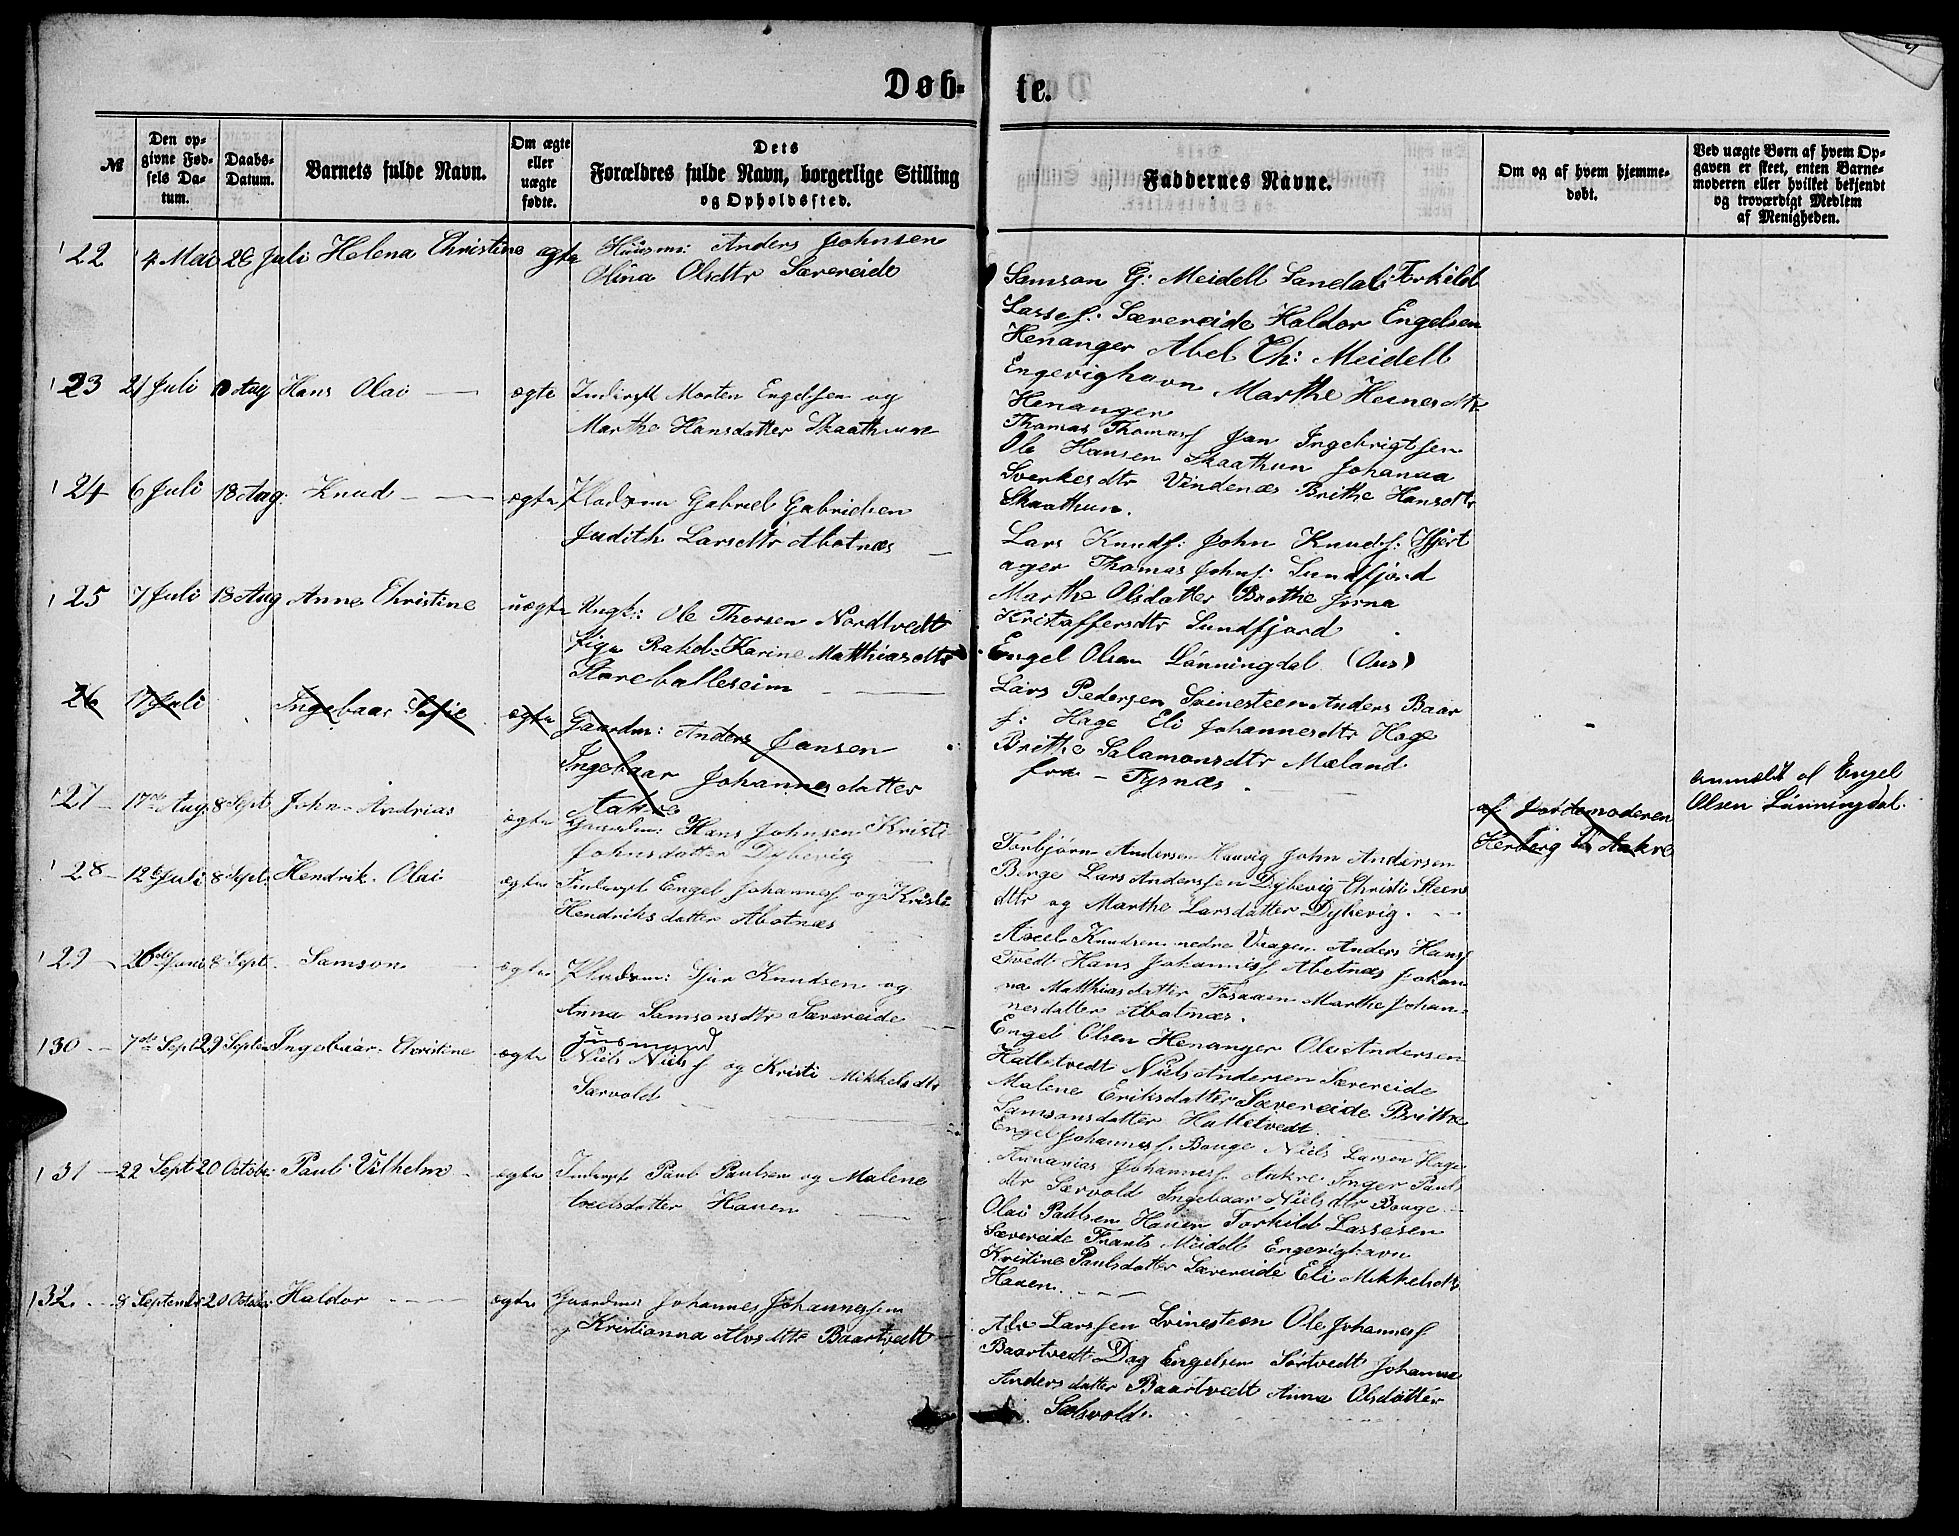 Døb-
te.
№
Den op-
givne Fød-
sels Da-
tum.
Daabs-
Datum.
Barnets fulde Navn.
Om ægte
eller
uægte
fødte.
Dets
Forældres fulde Navn, borgerlige Stilling
og Opholdssted.
Faddernes Navne.
Om og af hvem hjemme-
døbt.
Ved uægte Børn af hvem Op-
gaven er skeet, enten Barne-
moderen eller hvilket bekjendt
og troværdigt Medlem
af Menigheden.
22 4 Mai 26 Juli Helena Christine ægte Huusm: Anders Johnsen
Stina Olsdtr Sævereide
Samson G: Meidell Sandal: Torkild
Lassef: Sævereide Haldor Engelsen
Henanger Abel Ch: Meidell
Engevighavn Marthe Heinesdtr
Henanger
23 21 Juli Aug Hans Olai ægte Inderst Morten Engelsen og
Marthe Hansdatter Skaathun
Thomas Thomasf Jan Ingebrigtsen
Ole Hansen Skaathun Johanna
Sverkesdtr Vindenæs Brithe Hansdtr
Skaathun.
24 6 Juli 18 Aug. Knud ægte Pladsm Gabriel Gabrielsen
Judith Larsdtr Abotnæs
Lars Knudf: John Knudf: Hjert
ager Thomas Johnf: Sundfjord
Marthe Olsdatter Brethe Jorna
Kristoffersdtr Sundfjord
25 7 Juli 18 Aug Anne Christine uægte Ungk: Ole Thorsen Nordtvedt
Pige Rakel Karine Matthiasdtr
Storeballeseim
Engel Olsen Lønningdal (Ous)
Lars Pedersen Svinesteen Anders Baar
f: Hage Eli Johannesdtr Hage
Brithe Salamonsdtr Mæland
fra - Tysnæs.
anmeldt af Engel
Olsen Lønningdal.
26 17 Juli Ingebaar Sofie ægte Gaardm: Anders Jansen
Ingebaar Johannesdatter
Aakre
af Jordemoderen
Herborg Aakre
27 17de Aug: 8 Sept John Andrias ægte Gaardm: Hans Johnsen Kristi
Johnsdatter Dybevig
Torbjørn Andersen Hauvig John Andersen
Berge Lars Anderssen Dybevig Christi Steens
dtr og Marthe Larsdatter Dybevig.
28 12te Juli 8 Sept: Hendrik Olai ægte Inderst Engel Johannesf og Kristi
Hendriksdatter Abotnæs
Axel Knudsen nedre Vaagen Anders Hansf
Tvedt Hans Johannesf Abotnæs Johan
na Matthiasdatter Fosaaen Marthe Johan-
nesdatter Abotnæs.
29 26de Juni 8 Sept. Samson ægte Pladsm: Sjur Knudsen og
Anna Samsonsdtr Sævereide
Engel Olsen Henanger Ole Andersen
Halletvedt Niels Andersen Sævereide
Malene Eriksdatter Sævereide Brithe
Samsonsdatter Halletvedt
30 7de Sept 29 Septem Ingebaar Christine ægte Husmand
Niels Nielsf og Kristi Mikkelsdtr
Særvold
Engel Johannesf. Bouge Niels Larsen Hage
Ananias Johannesf. Aakre Inger Pauls
dtr Særvold Ingebaar Nielsdtr Bouge
31 22 Sept 20 October Paul Vilhelm ægte Inderst Paul Paulsen og Malene
Axelsdatter Hauen
Olai Paulsen Hauen Torkild Lassesen
Sævereide Frants Meidell Engevighavn
Kristine Paulsdatter Sævereide Eli Mikkelsdtr
Hauen.
32 8 September 20 October Haldor ægte Gaardm: Johannes Johannessen
og Kristianna Alvsdtr Baartvedt
Alv Larssen Svinesteen Ole Johannesf
Baartvedt Dag Engelsen Sørtvedt Johanna
Andersdatter Baartvedt Anna Olsdatter
Sælvold.